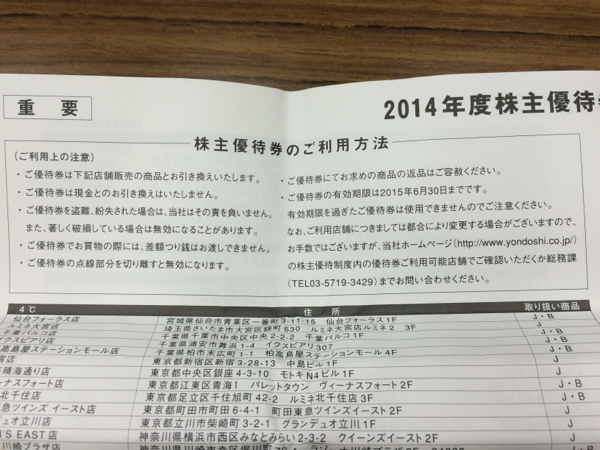 重 要
2014年度株主優待
株主優待券のご利用方法
(ご利用上の注意)
・ご優待券は下記店舗販売の商品とお引き換えいたします。
・ご優待券は現金とのお引き換えはいたしません。
・ご優待券を盗難、紛失された場合は、当社はその責を負いません。
また、著しく破損している場合は無効になることがあります。
・ご優待券でお買物の際には、差額つり銭はお渡しできません。
・ご優待券の点線部分を切り離すと無効になります。
・ご優待券にてお求めの商品の返品はご容赦ください。
・ご優待券の有効期限は2015年6月30日までです。
有効期限を過ぎたご優待券は使用できませんのでご注意ください。
なお、ご利用店舗につきましては都合により変更する場合がございますので、
お手数ではございますが、当社ホームページ(http://www.yondoshi.co.jp/)
の株主優待制度内の優待券ご利用可能店舗でご確認いただくか総務課
(TEL03-5719-3429)までお問い合わせください。
4℃ 住 所 取り扱い商品
仙台フォーラス店 宮城県仙台市青葉区一番町3-11-15 仙台フォーラス1F J・B
ルミネ大宮店 埼玉県さいたま市大宮区錦町630 ルミネ大宮店ルミネ2 3F J
千葉パルコ店 千葉県千葉市中央区中央2-2-2 千葉パルコ1F J・B
イクスピアリ店 千葉県浦安市舞浜1-4 イクスピアリ307 J・B
高島屋ステーションモール店 千葉県柏市末広町1-1 柏高島屋ステーションモール4F J・B
宮店 東京都新宿区新宿3-28-13 中島ビル1F J・B
晴海通り店 東京都中央区銀座4-3-10 モトキN4ビル1F J
ーナスフォート店 東京都江東区青海1 パレットタウン ヴィーナスフォート2F J・B
北千住店 東京都足立区千住旭町42-2 ルミネ北千住店3F J・B
急ツインズ イースト店 東京都町田市原町田6-4-1 町田東急ツインズイースト2F J
デュオ立川店 東京都立川市柴崎町3-2-1 グランデュオ立川1F J
N'S EAST店 神奈川県横浜市西区みなとみらい2-3-2 クイーンズイースト2F J
川崎プラザ店